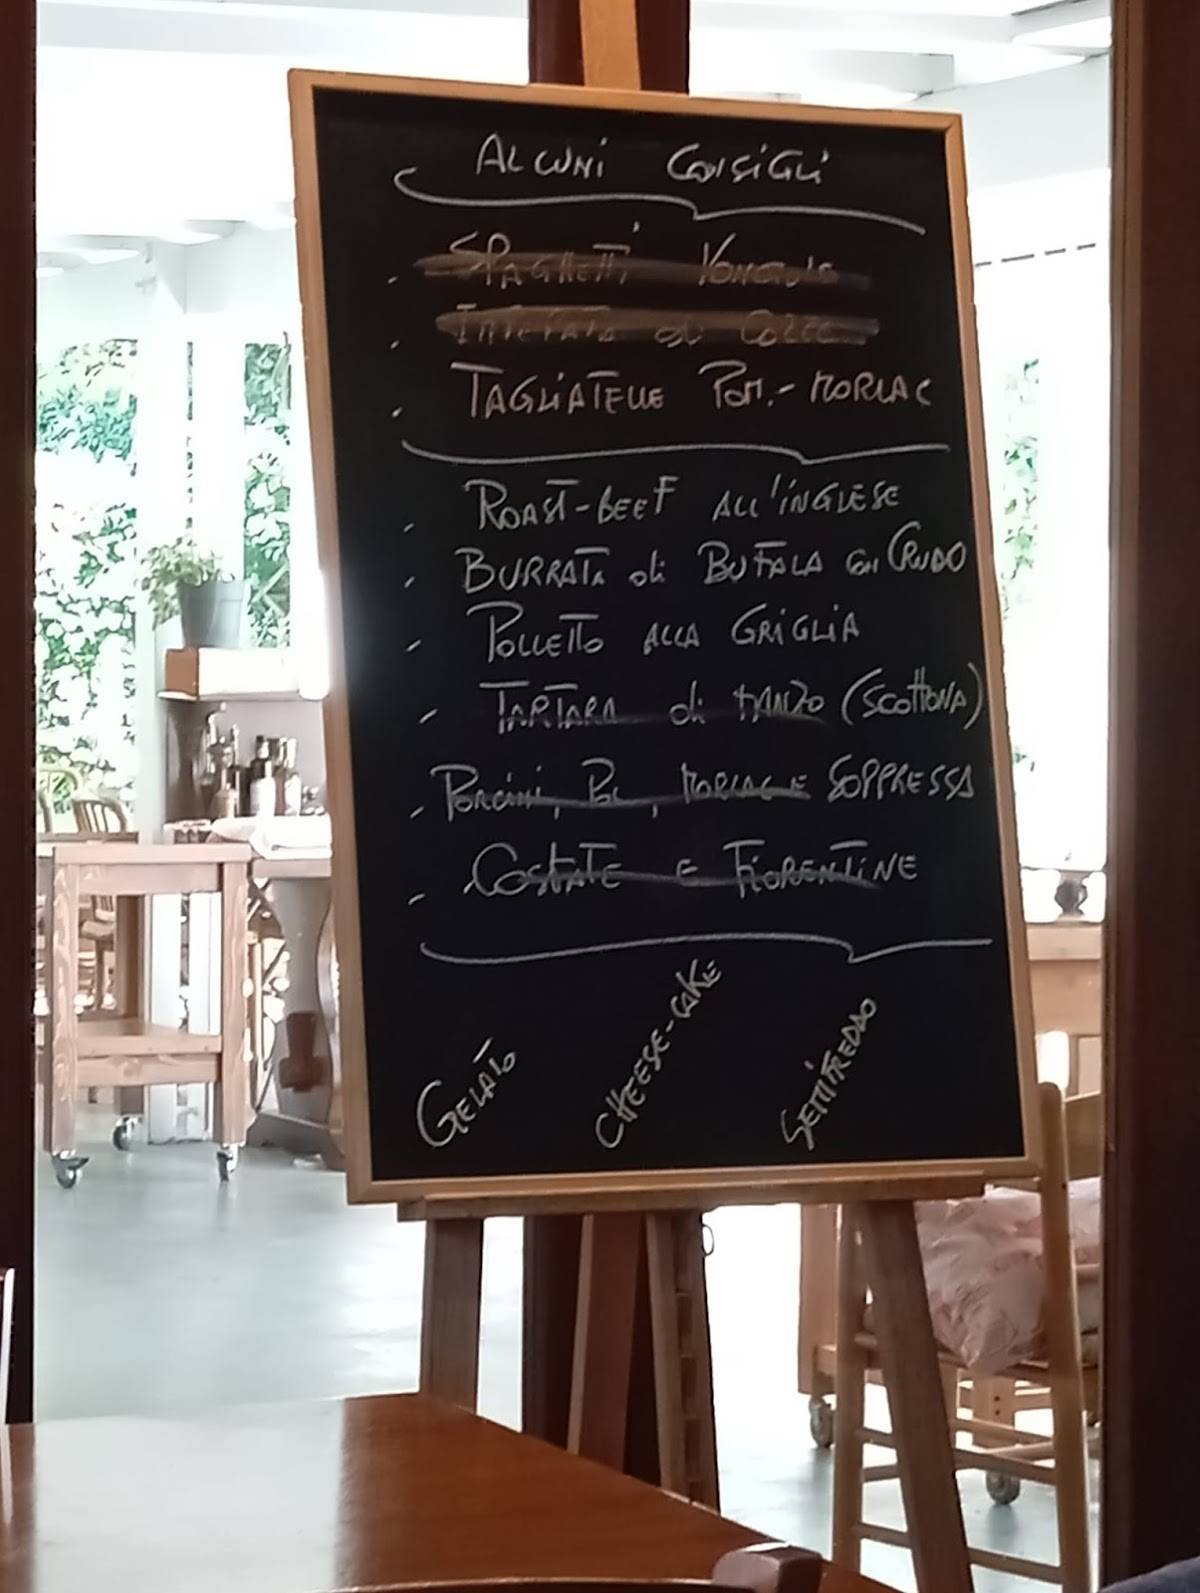 ALCUNI CONSIGLI
SPAGHETTI VONGOLE
di COZZE
TAGLIATELLE POM.-MORLAC
ROAST-BEEF ALL'INGLESE
BURRATA di BUFALA CON CRUDO
POLLETTO ALLA GRIGLIA
TARTARA di MANZO (SCOTTONA)
PORCINI, POL, MORLAC E SOPPRESSA
COSTATE E FIORENTINE
GELATO
CHEESE-CAKE
SEMIFREDDO